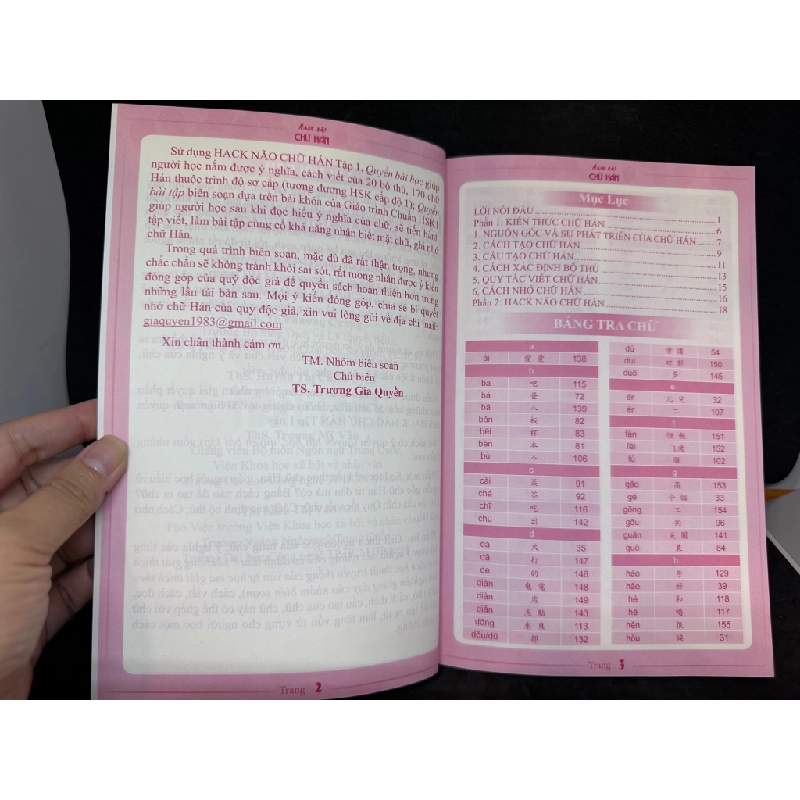 HACK NÃO
CHỮ HÁN
Sử dụng HACK NÃO CHỮ HÁN Tập 1, Quyển bài học giúp
người học nắm được ý nghĩa, cách viết của 20 bộ thủ, 170 chữ
Hán thuộc trình độ sơ cấp (tương đương HSK cấp độ 1); Quyển
bài tập biên soạn dựa trên bài khóa của Giáo trình Chuẩn HSK 1
giúp người học sau khi đọc hiểu ý nghĩa của chữ, sẽ tiến hành
tập viết, làm bài tập củng cố khả năng nhận biết mặt chữ, ghi nhớ
chữ Hán.
Trong quá trình biên soạn, mặc dù đã rất thận trọng, nhưng
chắc chắn sẽ không tránh khỏi sai sót, rất mong nhận được ý kiến
đóng góp của quý độc giả để quyển sách hoàn thiện hơn trong
những lần tái bản sau. Mọi ý kiến đóng góp, chia sẻ bí quyết
nhớ chữ Hán của quý độc giả, xin vui lòng gửi về địa chỉ mail:
giaquyen1983@gmail.com
Xin chân thành cảm ơn.
TM. Nhóm biên soạn
Chủ biên
TS. Trương Gia Quyền
Trang 2
HACK NÃO
CHỮ HÁN
Mục Lục
LỜI NÓI ĐẦU 1
Phần 1: KIẾN THỨC CHỮ HÁN 6
1. NGUỒN GỐC VÀ SỰ PHÁT TRIỂN CỦA CHỮ HÁN 7
2. CÁCH TẠO CHỮ HÁN 9
3. CẤU TẠO CHỮ HÁN 11
4. CÁCH XÁC ĐỊNH BỘ THỦ 13
5. QUY TẮC VIẾT CHỮ HÁN 15
6. CÁCH NHỚ CHỮ HÁN 16
Phần 2: HACK NÃO CHỮ HÁN 18
BẢNG TRA CHỮ
a
ài 爱 愛 138
b
ba 吧 115
bà 爸 72
bā 八 109
bǎn 板 82
bēi 杯 83
běn 本 81
bù 不 106
c
cài 菜 91
chá 茶 92
chī 吃 116
chū 出 142
d
dà 大 35
dǎ 打 147
de 的 148
diàn 电 電 148
diàn 店 149
diǎn 点 點 143
dōng 东 東 113
dōu/dū 都 132
dú 54
duì 150
duō 多 146
e
ér 儿 兒 32
èr 二 107
f
fàn 151
fēi 152
102
g
gāo 高 153
gè 个 個 33
gōng 工 154
gǒu 狗 96
guān 141
guǒ 果 84
h
hào 号 129
hǎo 好 39
hé 和 118
hē 喝 117
hěn 很 155
hòu 31
Trang 3